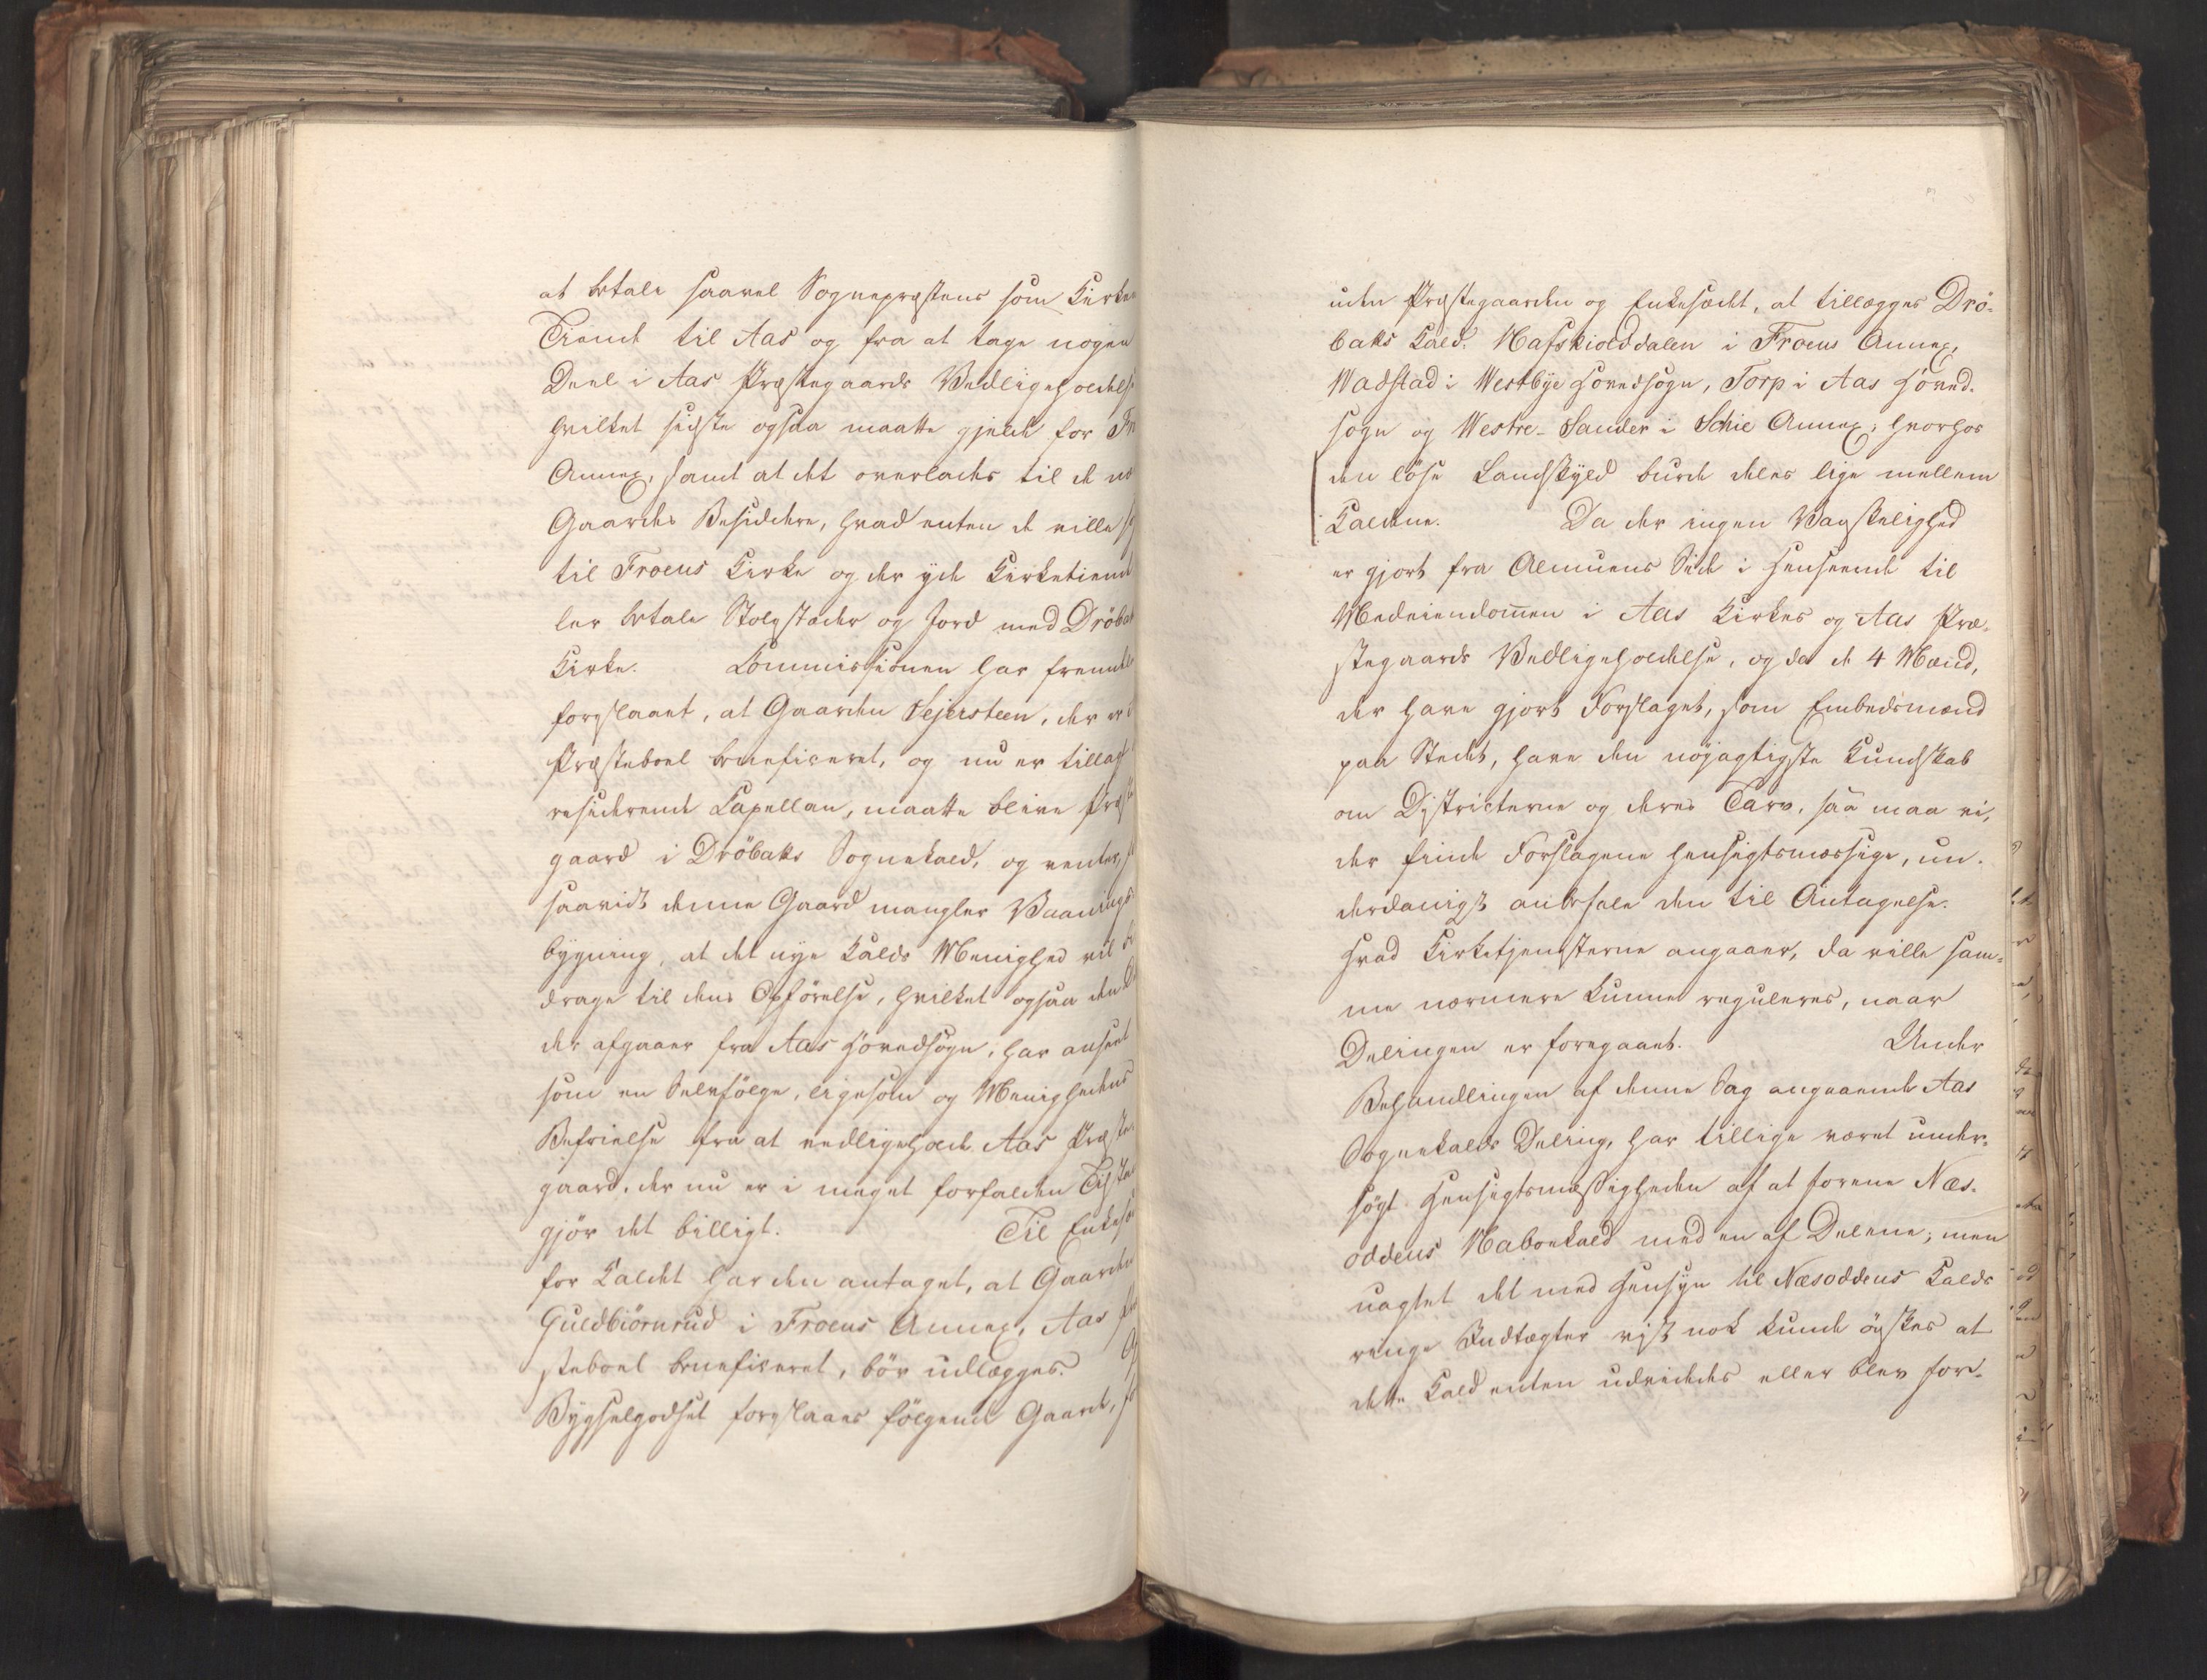 at betale saavel Sognepræstens som Kirken
Tiende til Aas og fra at tage nogen
Deel i Aas Præstegaards Vedligeholdelse
hvilket sidste ogsaa maatte gjelde for Fr
Annex, samt at det overlades til de
Gaardes Besiddere, hvad enten de ville
til Froens Kirke og der yde Kirketiende
ler betale Stolestader og Jord med Dröbak
Kirke. Commissionen har fremdeles
forslaaet, at Gaarden Sejersteen, der er
Præsteboel beneficeret, og nu er tillagt
residerende Capellan, maatte blive Præste
gaard i Dröbaks Sognekald, og venter,
saavidt denne Gaard mangler Vaanings
bygning, at det nye Kalds Menighed vil
drage til dens Opförelse, hvilket ogsaa den
der afgaaer fra Aas Hovedsogn, har anseet
som en Selvfölge, ligesom og Menighedens
Befrielse fra at vedligeholde Aas Præste-
gaard, der nu er i meget forfalden Tilstand
gjör det billigt. Til Enkesæ
for Kaldet har den antaget, at Gaarden
Guldbiörnrud i Froens Annex, Aas Præ
steboel beneficeret, bör udlægges.
Bygselgodset forslaaes fölgende Gaarde,
uden Præstegaarden og Enkesædet, at tillægges Drö-
baks Kald: Nafskiolddalen i Froens Annex,
Wadstad i Westbye Hovedsogn, Torp i Aas Hoved-
sogn og Westre-Sander i Schie Annex; hvorhos
den löse Landskyld burde deles lige mellem
Kaldene. Da der ingen Vanskelighed
er gjort fra Almuens Side i Henseende til
Medeiendommen i Aas Kirkes og Aas Præ-
stegaards Vedligeholdelse, og da de 4 Mænd,
der have gjort Forslaget, som Embedsmænd
paa Stedet, have den nöjagtigste Kundskab
om Districterne og deres Tarv, saa maa vi,
der finde Forslagene hensigtsmæssige, un-
derdanigst anbefale den til Antagelse.
Hvad Kirketjenesterne angaaer, da ville sam-
me nærmere kunne reguleres, naar
Delingen er foregaaet. Under
Behandlingen af denne Sag angaaende Aas
Sognekalds Deling, har tillige været under-
sögt Hensigtsmæssigheden af at forene Næs-
oddens Naboekald med en af Delene; men
uagtet det med Hensyn til Næsoddens Kalds
ringe Indtægter vist nok kunde önskes at
dette Kald enten udvidedes eller blev for-